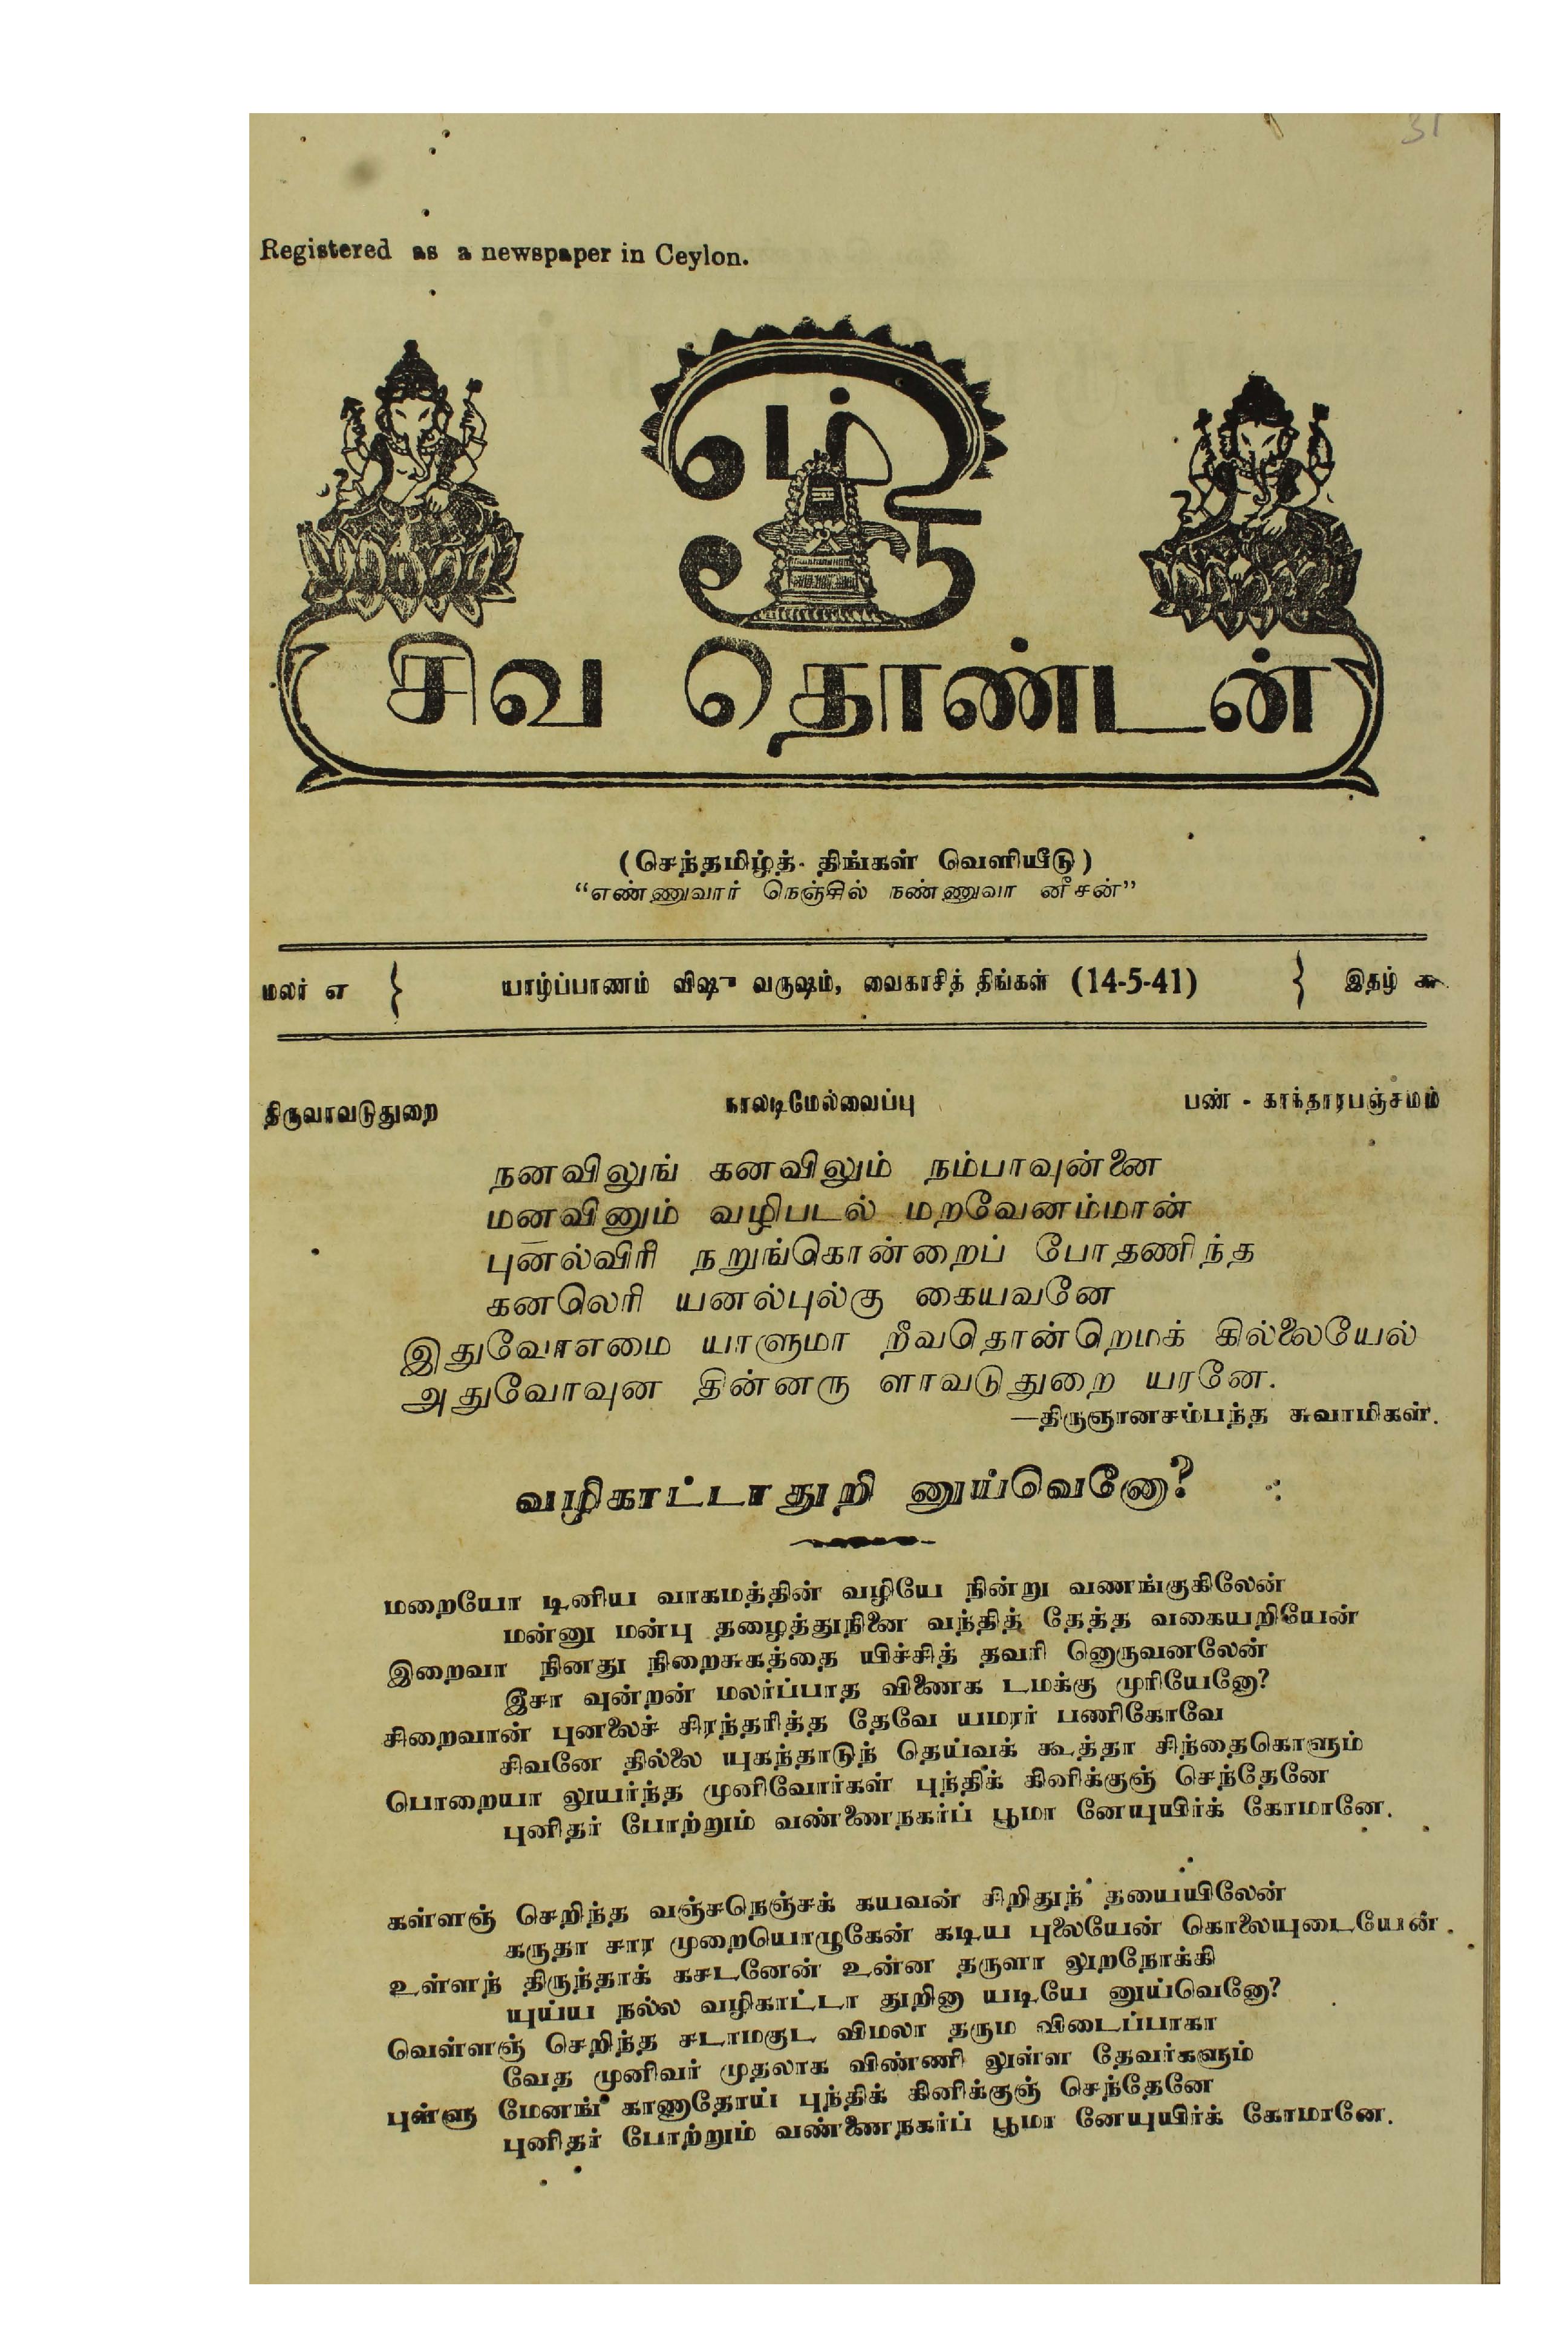 31
Registered as a newspaper in Ceylon.
ஓம்
சிவ தொண்டன்
(செந்தமிழ்த்- திங்கள் வெளியீடு)
“எண்ணுவார் நெஞ்சில் நண்ணுவா னீசன்”
மலர் எ } யாழ்ப்பாணம் விஷு வருஷம், வைகாசித் திங்கள் (14-5-41) } இதழ்
திருவாவடுதுறை நாலடிமேல்வைப்பு பண் - காந்தாரபஞ்சமம்
நனவிலுங் கனவிலும் நம்பாவுன்னை
மனவினும் வழிபடல் மறவேனம்மான்
புனல்விரி நறுங்கொன்றைப் போதணிந்த
கனலெரி யனல்புல்கு கையவனே
இதுவோஎமை யாளுமா றீவதொன்றெமக் கில்லையேல்
அதுவோவுன தின்னரு ளாவடுதுறை யரனே.
—திருஞானசம்பந்த சுவாமிகள்.
வழிகாட்டாதுறி னுய்வெனோ?
மறையோ டினிய வாகமத்தின் வழியே நின்று வணங்குகிலேன்
மன்னு மன்பு தழைத்துநினை வந்தித் தேத்த வகையறியேன்
இறைவா நினது நிறைசுகத்தை யிச்சித் தவரி னொருவனலேன்
இசா வுன்றன் மலர்ப்பாத விணைக டமக்கு முரியேனோ?
சிறைவான் புனலைச் சிரந்தரித்த தேவே யமரர் பணிகோவே
சிவனே தில்லை யுகந்தாடுந் தெய்வக் கூத்தா சிந்தைகொளும்
பொறையா லுயர்ந்த முனிவோர்கள் புந்திக் கினிக்குஞ் செந்தேனே
புனிதர் போற்றும் வண்ணைநகர்ப் பூமா னேயுயிர்க் கோமானே.
கள்ளஞ் செறிந்த வஞ்சநெஞ்சக் கயவன் சிறிதுந் தயையிலேன்
கருதா சார முறையொழுகேன் கடிய புலையேன் கொலையுடையேன்.
உள்ளந் திருந்தாக் கசடனேன் உன்ன தருளா லுறநோக்கி
யுய்ய நல்ல வழிகாட்டா துறினு யடியே னுய்வெனோ?
வெள்ளஞ் செறிந்த சடாமகுட விமலா தரும விடைப்பாகா
வேத முனிவர் முதலாக விண்ணி லுள்ள தேவர்களும்
புள்ளு மேனங் காணாதோய் புந்திக் கினிக்குஞ் செந்தேனே
புனிதர் போற்றும் வண்ணைநகர்ப் பூமா னேயுயிர்க் கோமானே.